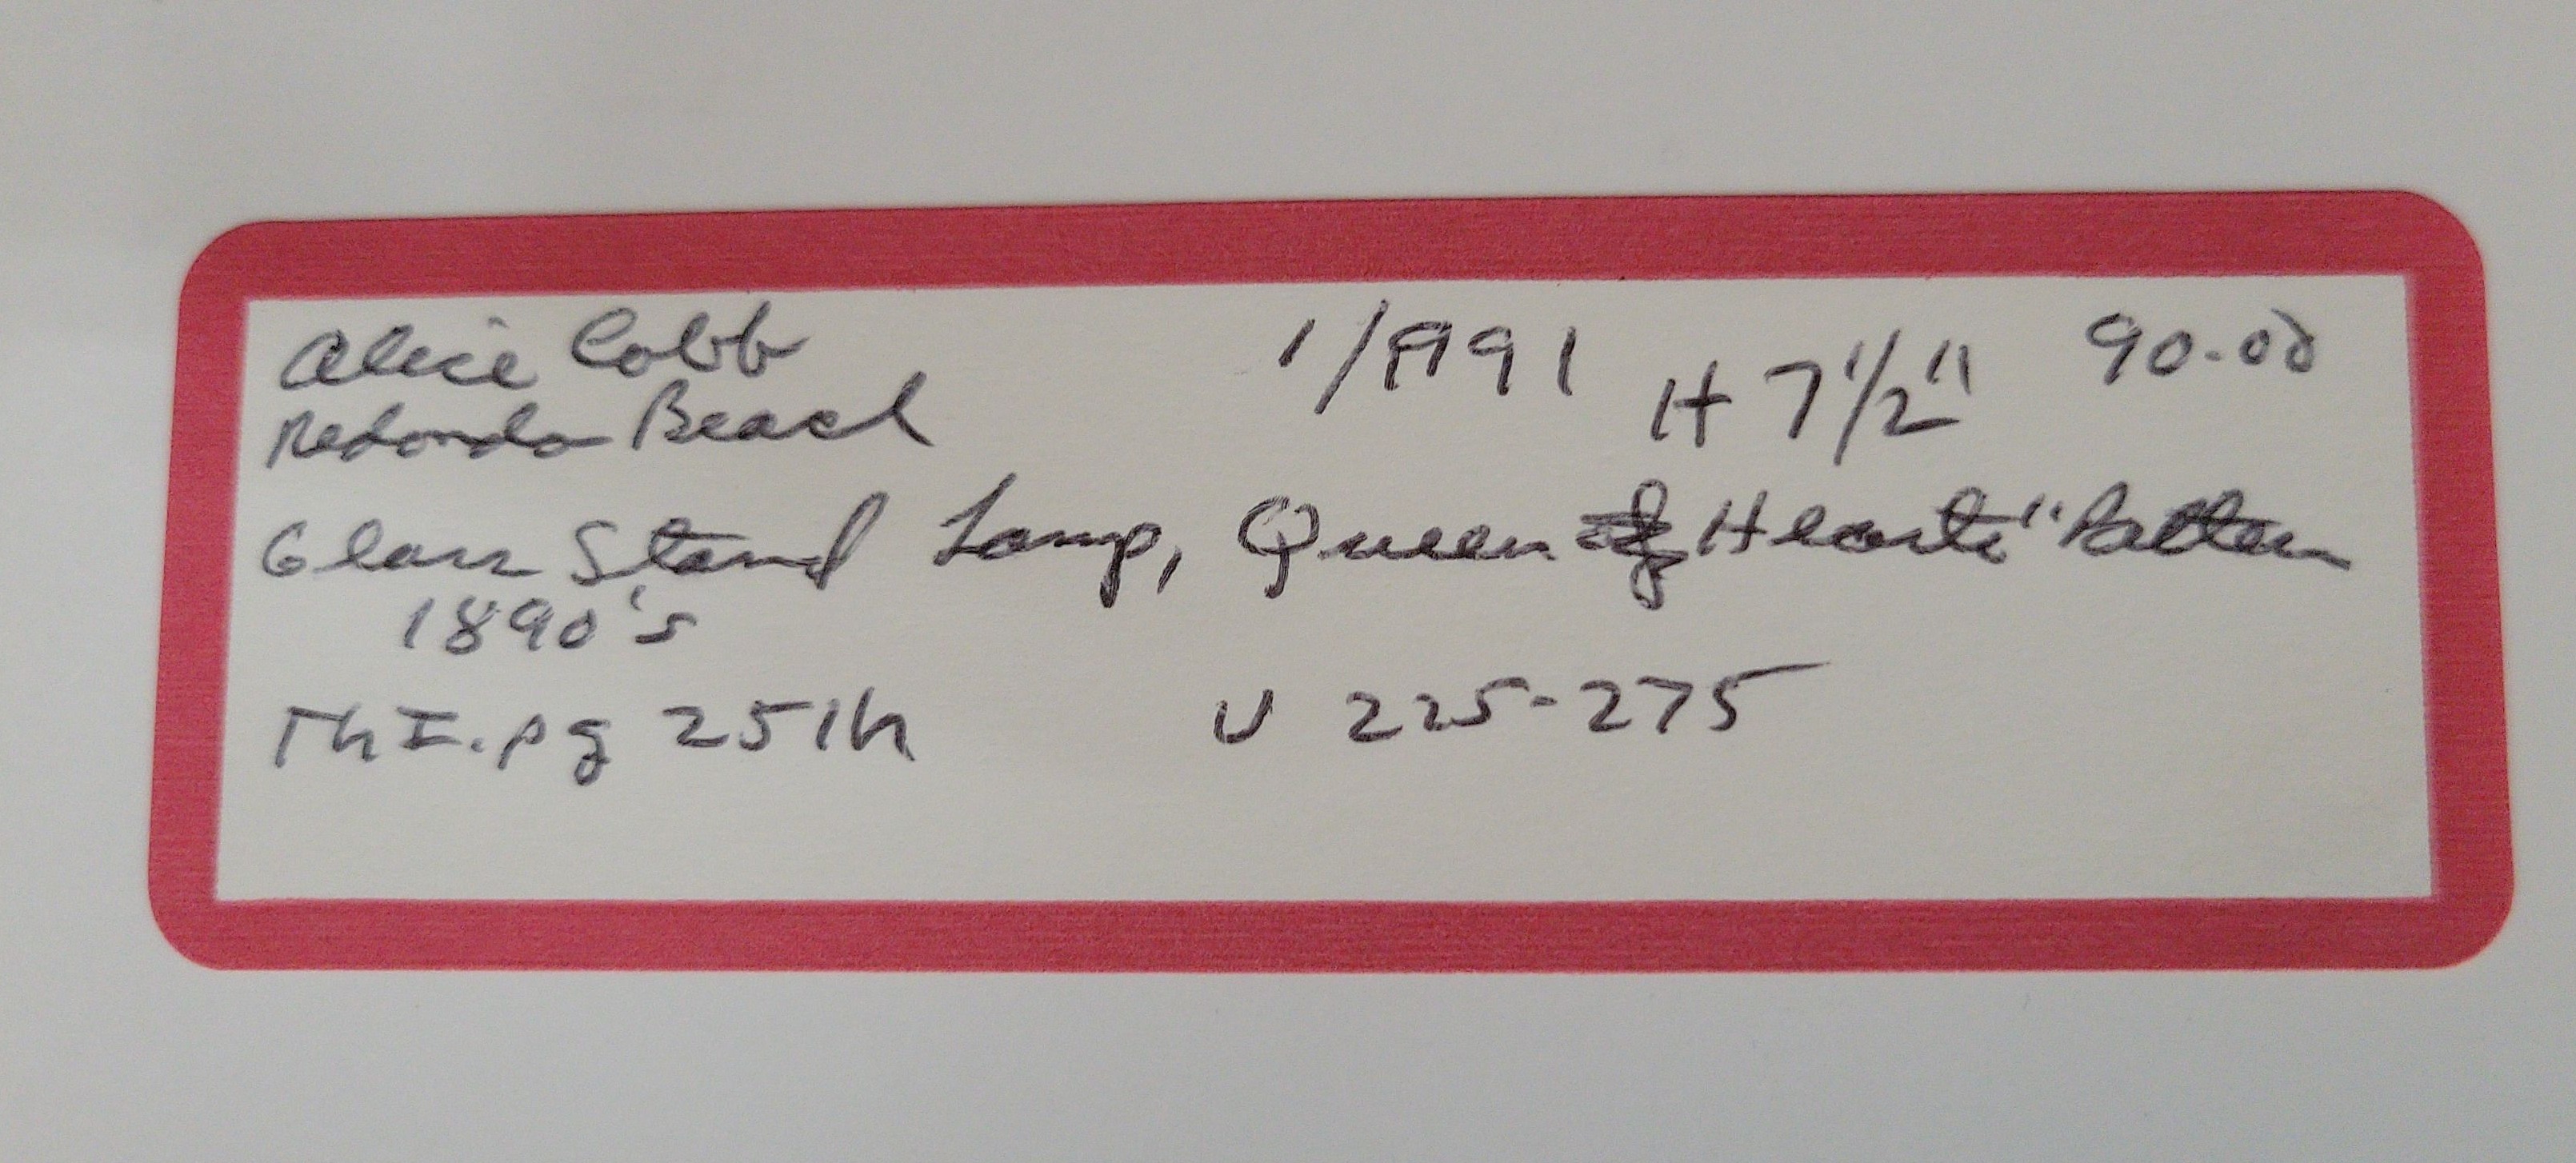 Alice Cobb 1/1991 H 7 1/2" 90.00
Redondo Beach
Glass Stand Lamp, Queen of Hearts" Pattern
1890's
Th I. pg 251h V 225-275